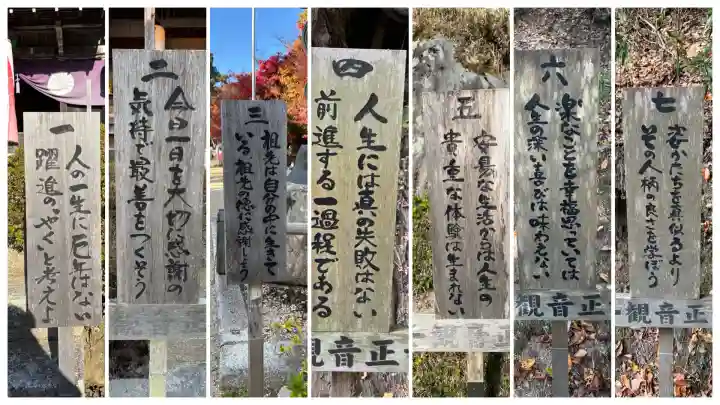 一
人の一生に厄年はない
躍進の"やく"と考えよ
二
今日一日を大切に感謝の
気持で最善をつくそう
三
祖先は自分の中に生きて
いる祖先の徳に感謝しよう
四
人生には真の失敗はない
前進する一過程である
観音正
五
安易な生活からは人生の
貴重な体験は生まれない
六
楽なことを幸福と思っていては
人生の深い喜びは味わえない
観音正
七
姿かたちを真似るより
その人柄の良さを学ぼう
観音正